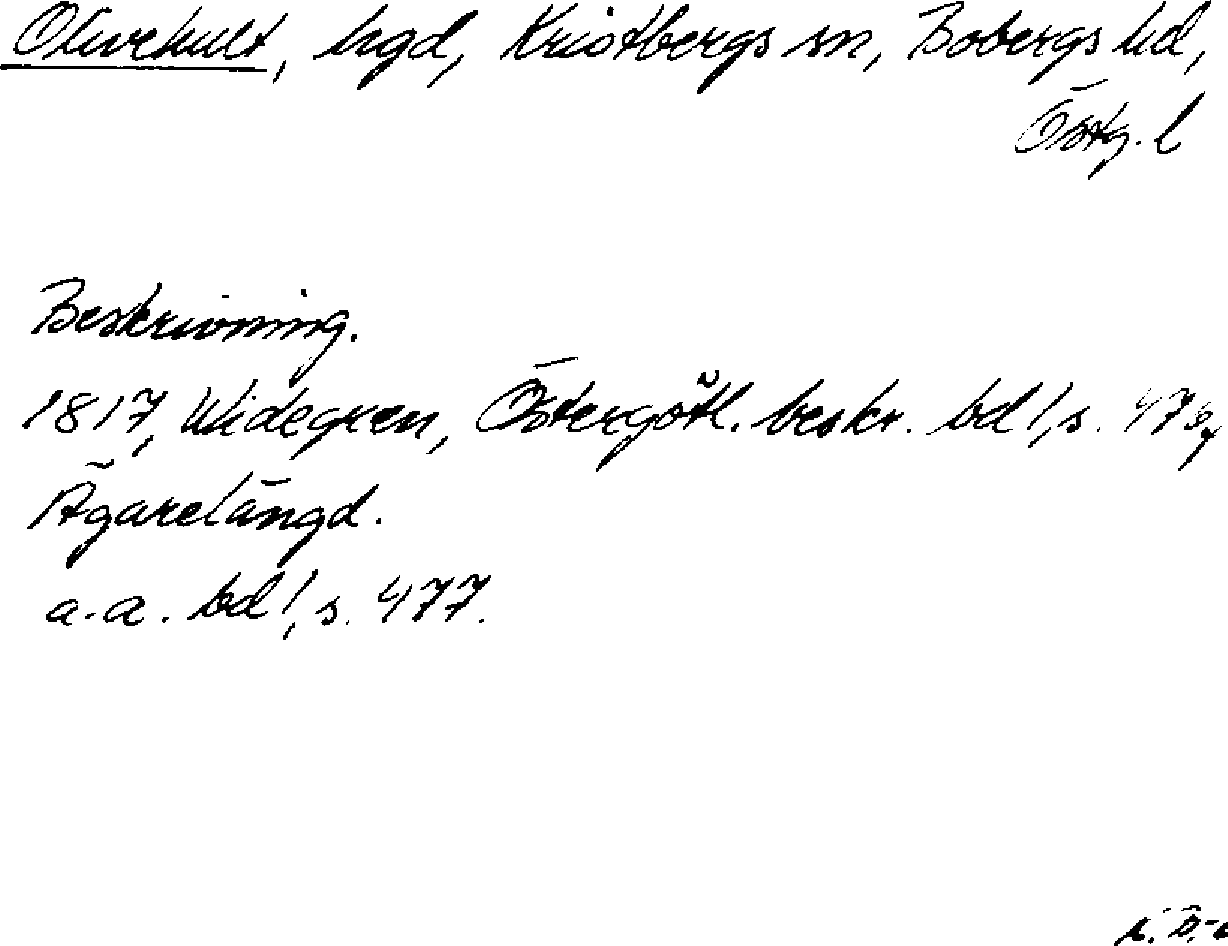 Olivehult, hgd, Kristbergs sn, Bobergs hd,
Östg. l
Beskrivning.
1817, Widegren, Östergötl. beskr. bd 1, s. 476,
Ägarelängd.
a.a. bd 1, s. 477.